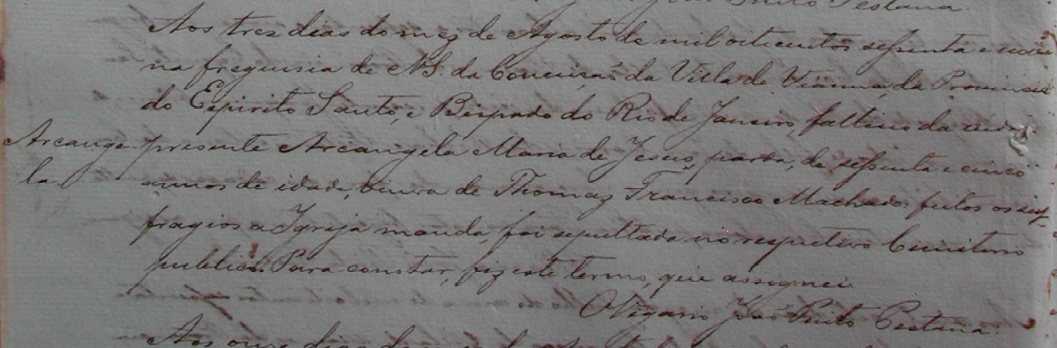 Pinto Pestana.
Aos tres dias do mez de Agosto de mil oitocentos sessenta e
na freguisia de N S. da Conceição da Villa de Vianna, da Provincia
do Espirito Santo, e Bispado do Rio de Janeiro, falleceo da vida
Arcange presente Arcangela Maria de Jesus, parda, de sessenta e cinco
la annos de idade, viuva de Thomaz Francisco Machado: feitos os suf-
fragios a Igreja manda, foi sepultada no respetivo Cemiterio
publico. Para constar, fiz este termo, que assignei
O Vigario José Pinto Pestana.
Aos onze dias do mez de